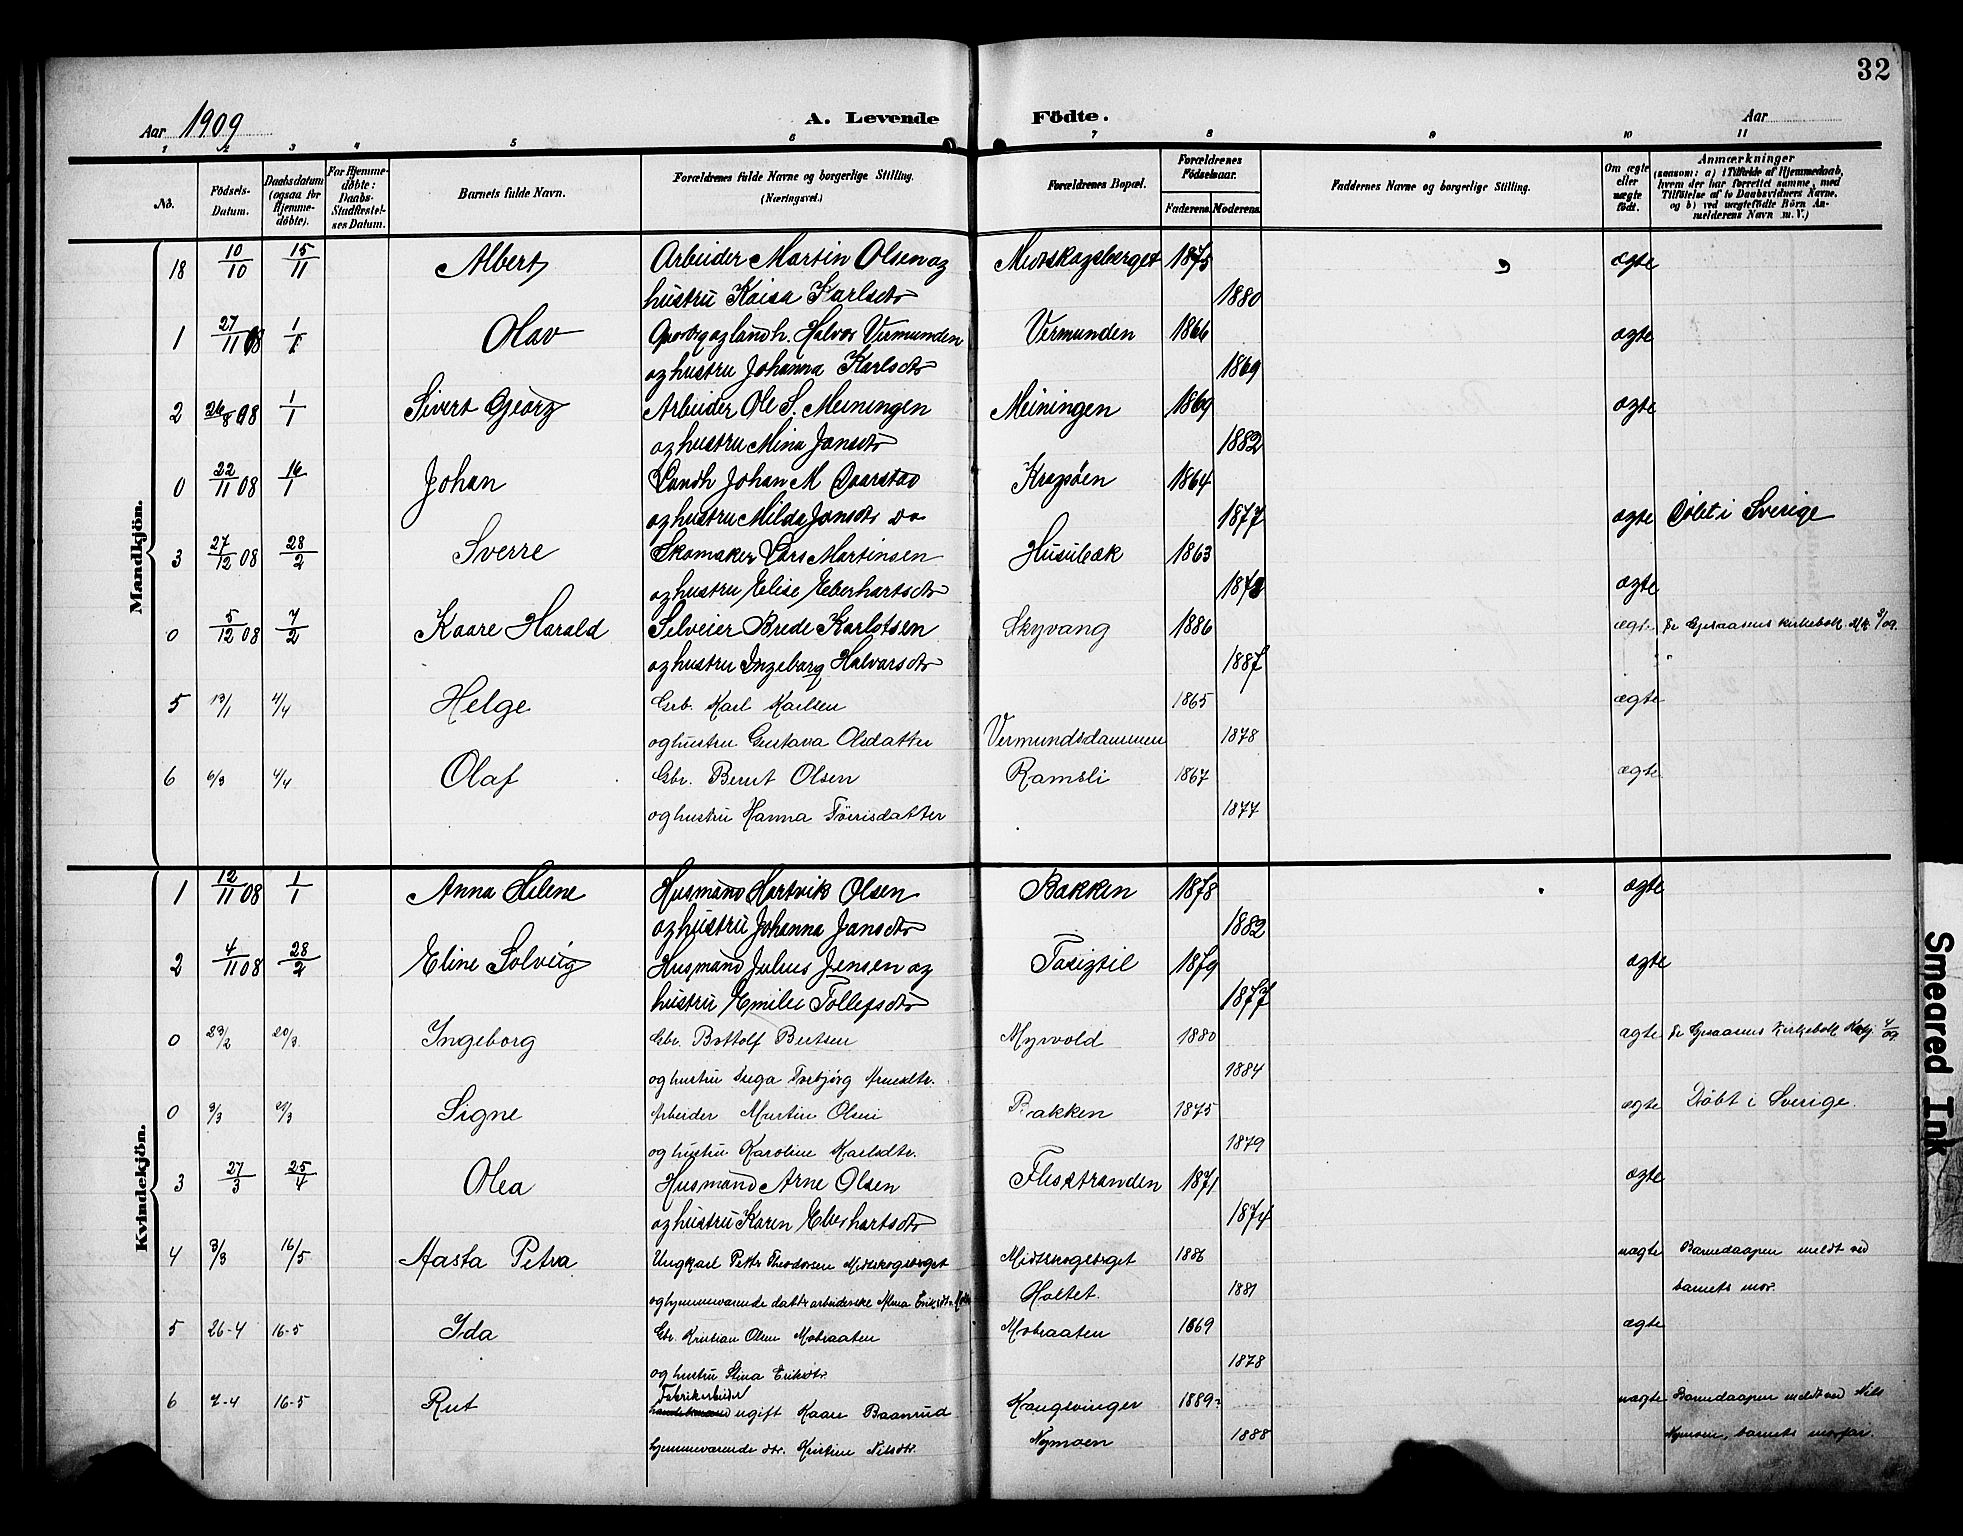 32
Aar 1909 A. Levende Födte. Aar
1 2 3 4 5 6 7 8 9 10 11
No. Födsels-Datum. Daabsdatum (ogsaa for Hjemmedöbte). For Hjemmedöbte: Daabs-Stadfestelses Datum. Barnets fulde Navn. Forældrenes fulde Navne og borgerlige Stilling. (Næringsvei.) Forældrenes Bopæl. Forældrenes Födselsaar. Faderens. Moderens. Faddernes Navne og borgerlige Stilling. Om ægte eller uægte födt. Anmærkninger (saasom: a) i Tilfælde af Hjemmedaab, hvem der har forrettet samme, med Tilföielse af to Daabsvidners Navne, og b) ved uægtefödte Börn Anmelderens Navn m. V.)
Mandkjön.
18 10/10 15/11 Albert Arbeider Martin Olsen og 1875 ægte
hustru Kaisa Karlsdtr 1880
1 27/11 08 1/1 Olav Halvor Vermunden Vermunden 1866 ægte
og hustru Johanna Karlsdtr 1869
2 26/8 08 1/1 Sivert Georg Arbeider Ole S. Meiningen Meiningen 1869 ægte
og hustru Mina Jansdtr 1882
0 22/11 08 16/1 Johan Landh Johan M 1864
og hustru Milda Jansdtr 1877 ægte Döbt i Sverige
3 27/12 08 28/2 Sverre Skomaker Lars Martinsen Husubæk 1863
og hustru Elise Eberhartsdtr ægte
0 5/12 08 7/2 Kaare Harald Brede Karlotsen Skyvang 1886 ægt.
og hustru Ingeborg Halvorsdtr 1887
5 13/1 4/4 Helge Karl Karlsen 1865 ægte
og hustru Gustava Olsdatter Vermundsdammen 1878
6 6/3 4/4 Olaf Gbr. Bernt Olsen Ramsli 1867 ægte
og hustru Hanna 1877
Kvindekjön.
1 12/11 08 1/1 Anna Helene Husmand Hartvik Olsen Bakken 1878 ægte
og hustru Johanna Jansdtr 1882
2 4/11 08 28/2 Eline Solveig Husmand Julius Jensen og 1879 ægte
hustru Emilie Tollefsdtr 1877
0 20/3 Ingeborg Gbr. Bottolf Berntsen Myrvold 1880 ægte
og hustru Inga Torbjörg 1884
0 3/3 21/3 Signe Arbeider Martin Olsen Bakken 1875 ægte Döbt i Sverige.
og hustru Karoline Karlsdtr. 1879
3 27/3 25/4 Olea Husmand Arne Olsen Flisstranden 1871 ægte
og hustru Karen Eberhartsdtr 1874
4 3/3 16/5 Aasta Petra Ungkarl Petter Theodorsen Midtskogberget Midtskogberget 1886 uægte Barnedaapen meldt ved
og hjemmeværende datter arbeiderske Alma Holtet. 1881 barnets mor.
5 26-4 16-5 Ida Gbr. Kristian Olsen Mobraaten Mobraaten 1869 ægte
og hustru Stina Eriksdtr 1878
Fabrikarbeider
6 7-4 16-5 Rut ugift Kaare Baanrud Kongsvinger 1889 uægte Barnedaapen meldt ved Nils
hjemmeværende dtr. Kristine Nilsdtr. Nymoen 1888 Nymoen, barnets morfar.
Smeared Ink